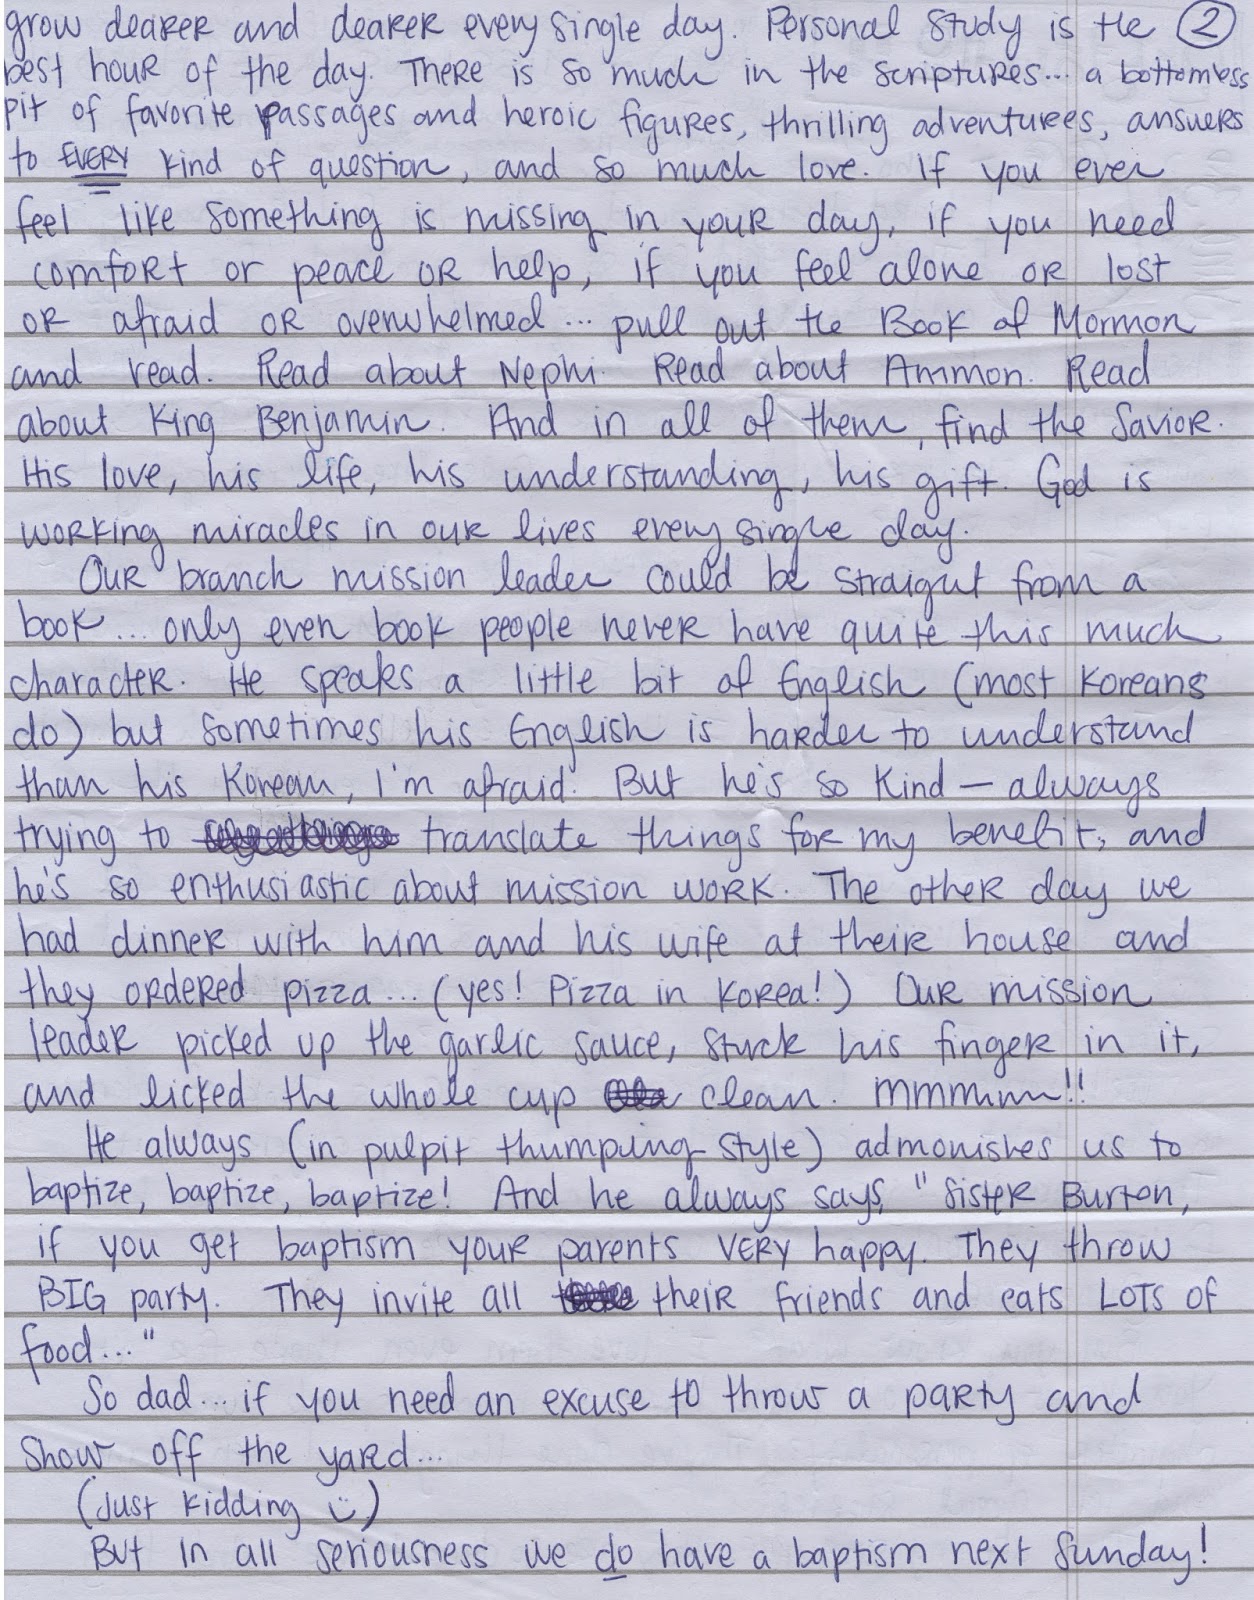 grow dearer and dearer every single day. Personal Study is the 2
best hour of the day. There is so much in the scriptures... a bottomless
pit of favorite passages and heroic figures, thrilling adventures, answers
to EVERY kind of question, and so much love. If you ever
feel like something is missing in your day, if you need
comfort or peace or help, if you feel alone or lost
or afraid or overwhelmed... pull out the Book of Mormon
and read. Read about Nephi. Read about Ammon. Read
about King Benjamin. And in all of them, find the Savior.
His love, his life, his understanding, his gift. God is
working miracles in our lives every single day.
Our branch mission leader could be straight from a
book... only even book people never have quite this much
character. He speaks a little bit of English (most Koreans
do) but sometimes his English is harder to understand
than his Korean, I'm afraid. But he's so kind — always
trying to translate things for my benefit, and
he's so enthusiastic about mission work. The other day we
had dinner with him and his wife at their house and
they ordered pizza... (yes! Pizza in Korea!) Our mission
leader picked up the garlic sauce, stuck his finger in it,
and licked the whole cup clean. mmmmm!!
He always (in pulpit thumping style) admonishes us to
baptize, baptize, baptize! And he always says, "Sister Burton,
if you get baptism your parents VERY happy. They throw
BIG party. They invite all their friends and eats LOTS of
food..."
So dad... if you need an excuse to throw a party and
show off the yard...
(Just kidding :))
But in all seriousness we do have a baptism next Sunday!